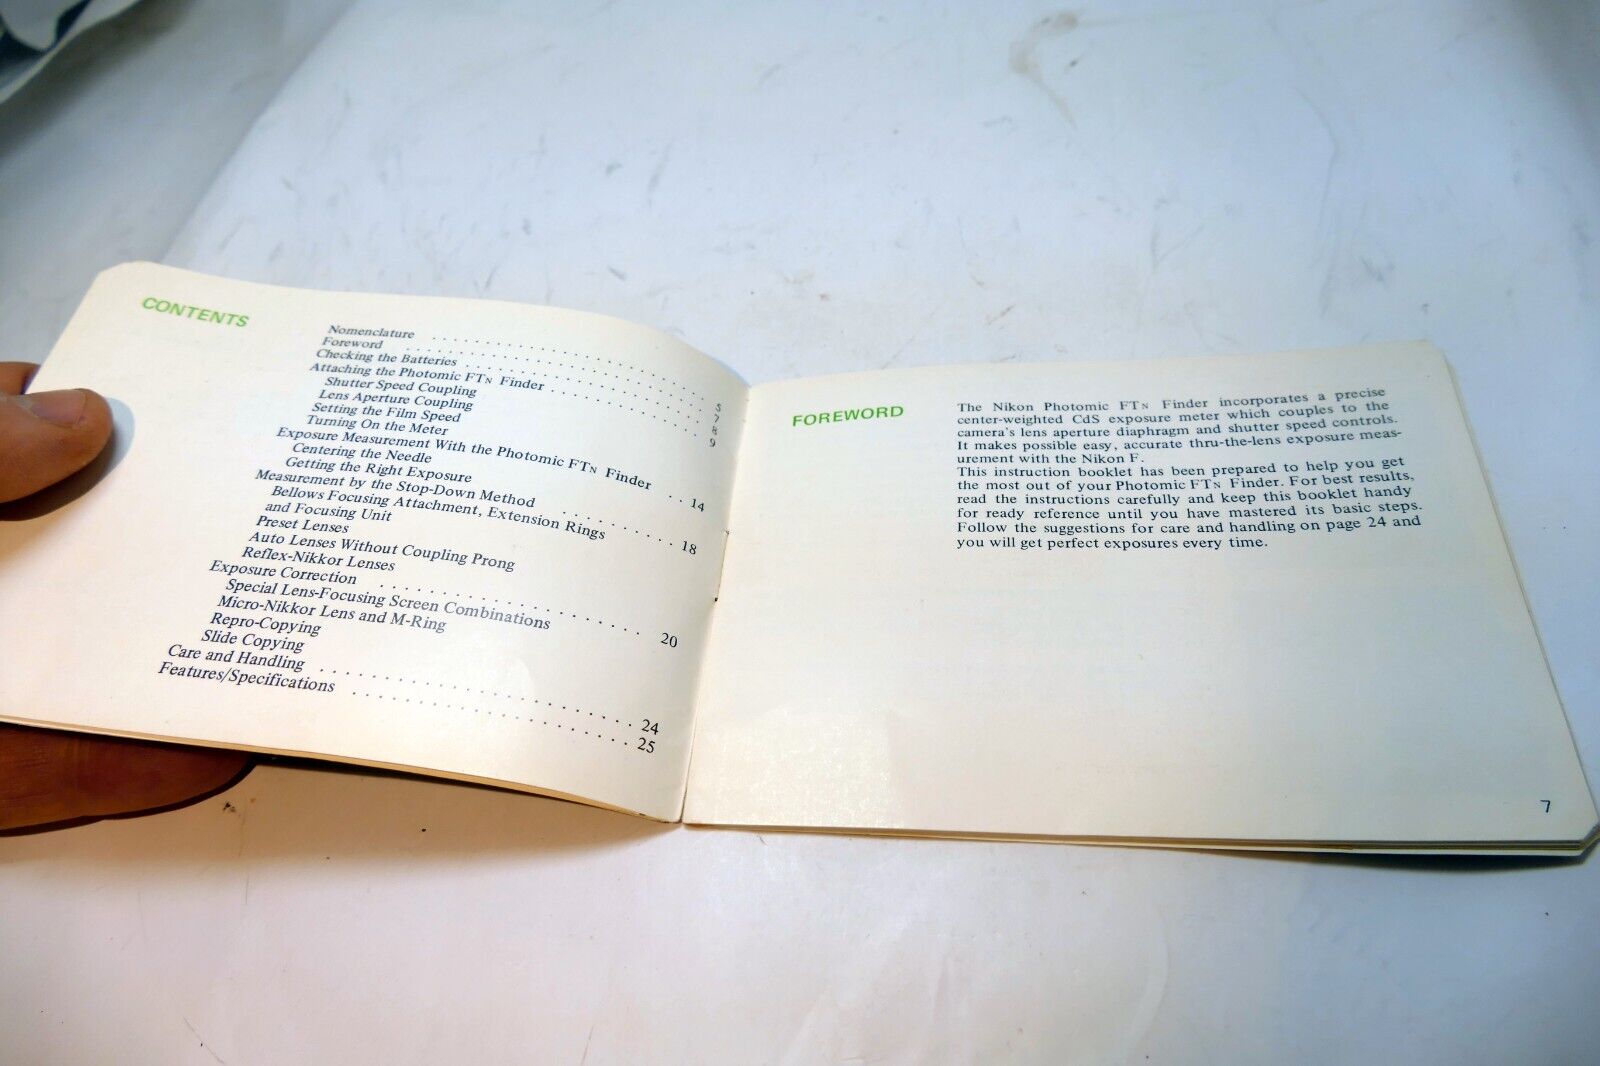 CONTENTS
Nomenclature . . . . . . . . . . . . . . . . . . . . . 5
Foreword . . . . . . . . . . . . . . . . . . . . . . . 7
Checking the Batteries . . . . . . . . . . . . . . . . 8
Attaching the Photomic FTN Finder . . . . . . . . . . . 9
Shutter Speed Coupling
Lens Aperture Coupling
Setting the Film Speed
Turning On the Meter
Exposure Measurement With the Photomic FTN Finder . . 14
Centering the Needle
Getting the Right Exposure
Measurement by the Stop-Down Method . . . . . . . . . . 18
Bellows Focusing Attachment, Extension Rings
and Focusing Unit
Preset Lenses
Auto Lenses Without Coupling Prong
Reflex-Nikkor Lenses
Exposure Correction . . . . . . . . . . . . . . . . . . 20
Special Lens-Focusing Screen Combinations
Micro-Nikkor Lens and M-Ring
Repro-Copying
Slide Copying
Care and Handling . . . . . . . . . . . . . . . . . . . 24
Features/Specifications . . . . . . . . . . . . . . . . 25
FOREWORD
The Nikon Photomic FTN Finder incorporates a precise
center-weighted CdS exposure meter which couples to the
camera's lens aperture diaphragm and shutter speed controls.
It makes possible easy, accurate thru-the-lens exposure meas-
urement with the Nikon F.
This instruction booklet has been prepared to help you get
the most out of your Photomic FTN Finder. For best results,
read the instructions carefully and keep this booklet handy
for ready reference until you have mastered its basic steps.
Follow the suggestions for care and handling on page 24 and
you will get perfect exposures every time.
7